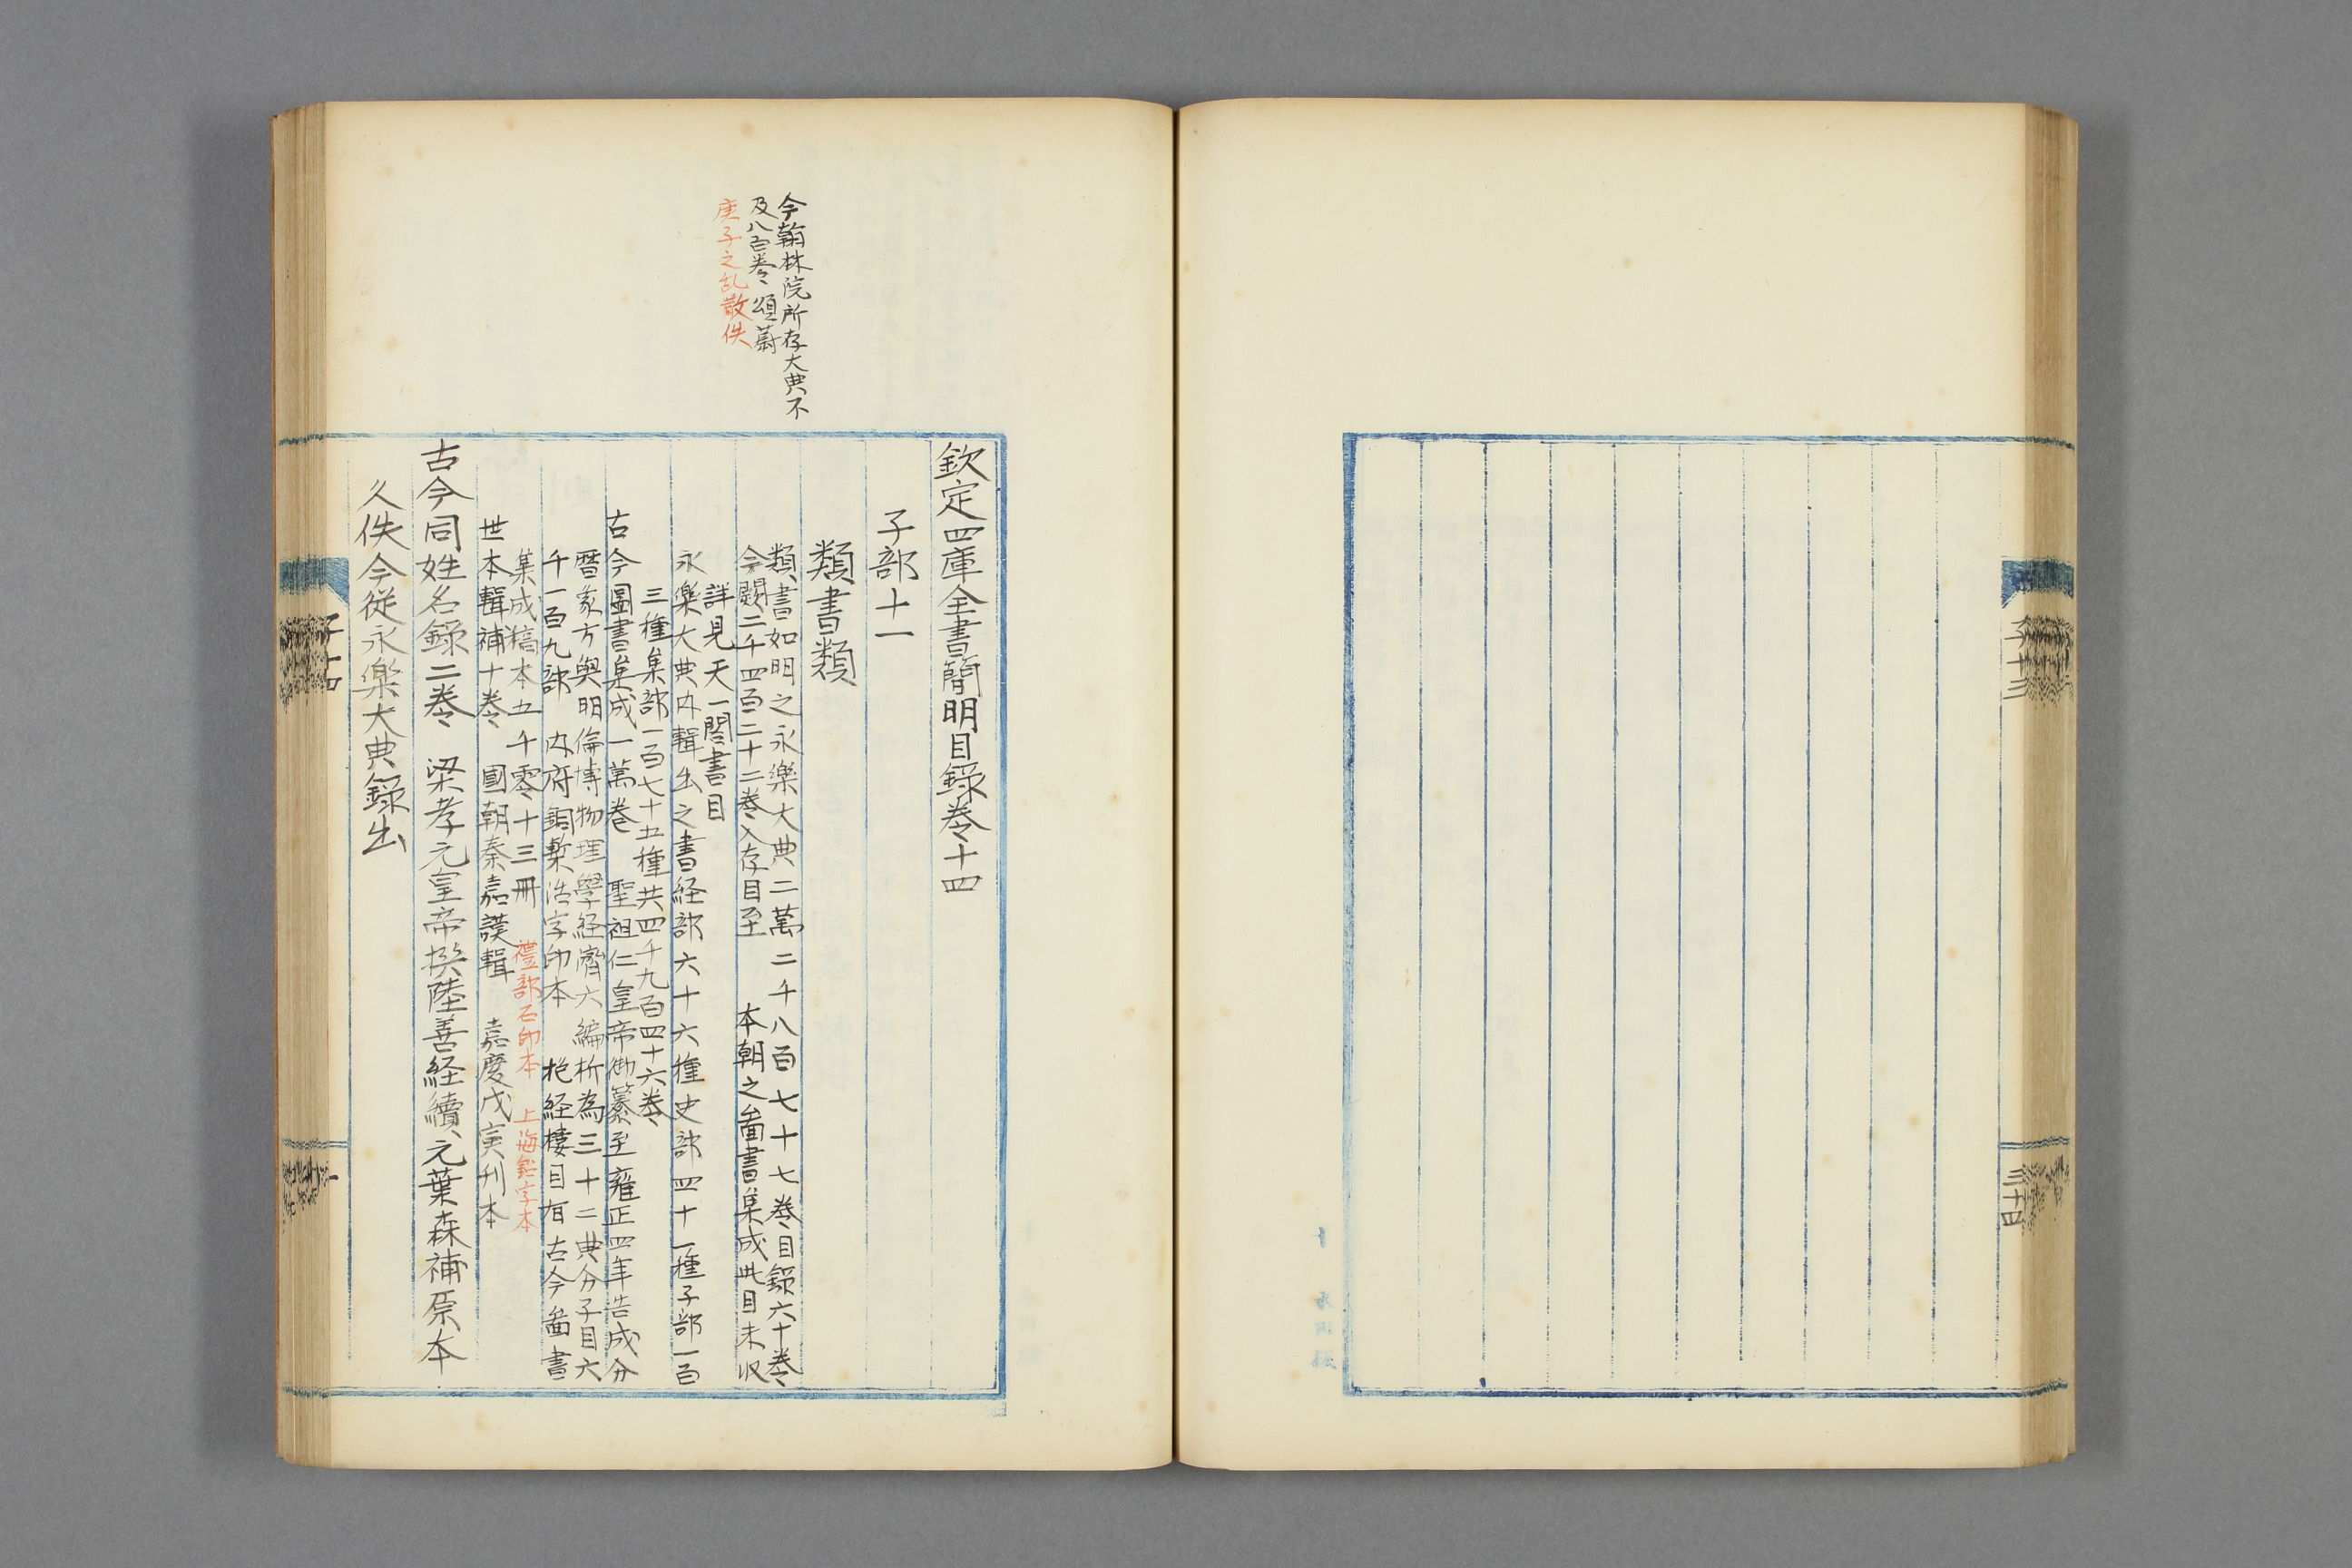 子十三
三十四
今翰林院所存大典不
及八百卷 頌蔚
庚子之乱散佚
欽定四庫全書簡明目錄卷十四
子部十一
類書類
類書如明之永樂大典二萬二千八百七十七卷目錄六十卷
今闕二千四百二十二卷入存目至 本朝之啚書集成此目未収
詳見天一閣書目
永樂大典内輯出之書経部六十六種史部四十一種子部一百
三種集部一百七十五種共四千九百四十六卷
古今圖書集成一萬卷 聖祖仁皇帝勅纂至雍正四年告成分
暦象方輿明倫博物理學経濟六編析為三十二典分子目六
千一百九部 内府銅槧活字印本 抱経樓目有古今啚書
集成稿本五千零十三冊 禮部石印本 上海鉛字本
世本輯補十卷 國朝秦嘉謨輯 嘉慶戊寅刋本
古今同姓名錄二卷 梁孝元皇帝撰陸善経續元葉森補原本
久佚今從永樂大典錄出
子十四
一